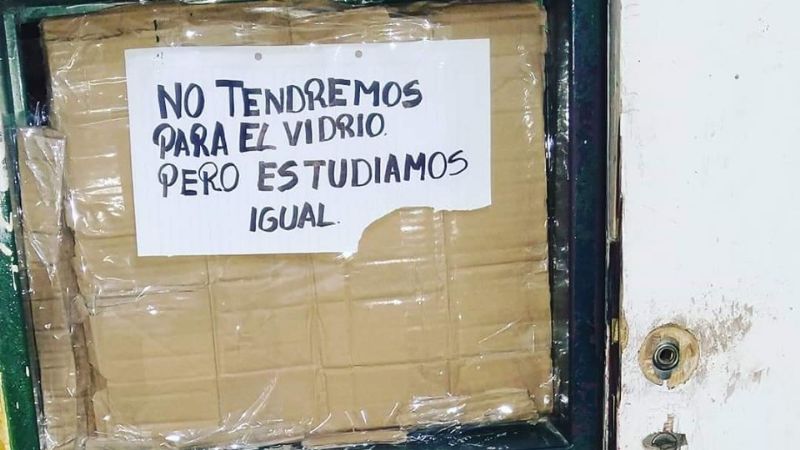 NO TENDREMOS
PARA EL VIDRIO.
PERO ESTUDIAMOS
IGUAL.